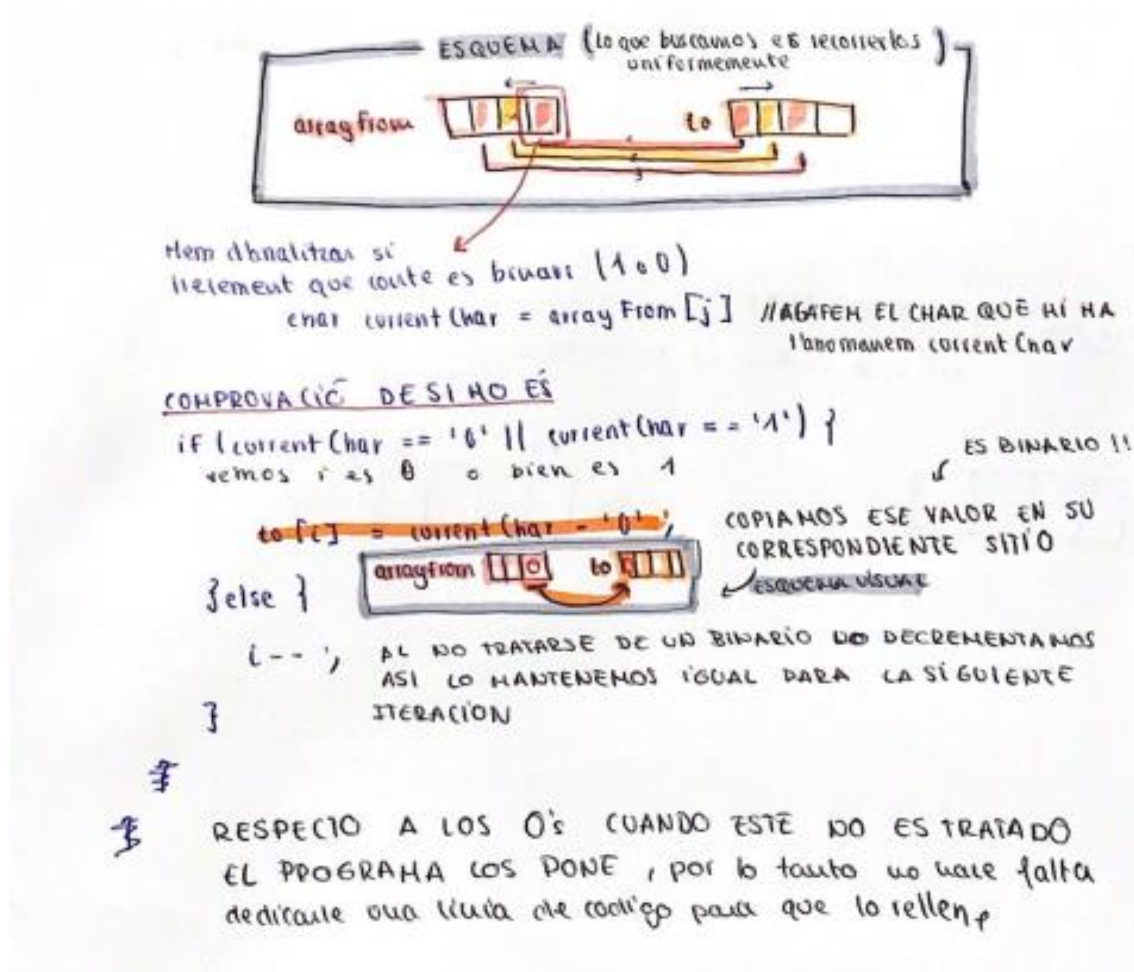 ESQUEMA (Lo que buscamos es recorrerlos
uniformemente)
array from
to
Hem d'analitzar si
l'element que conté es binari (1 o 0)
char current Char = array From [j] //AGAFEM EL CHAR QUE HI HA
l'anomanem current Char
COMPROVACIÓ DE SI HO ÉS
if (current Char == '0' || current Char == '1') {
vemos i es 0 o bien es 1
ES BINARIO !!
to [i] = current Char - '0' ;
COPIAMOS ESE VALOR EN SU
CORRESPONDIENTE SITIO
array from to
ESQUEMA VISUAL
}else }
i-- ; AL NO TRATARSE DE UN BINARIO DECREMENTAMOS
ASI LO MANTENEMOS IGUAL PARA LA SIGUIENTE
ITERACION
}
}
}
RESPECTO A LOS 0's CUANDO ESTE NO ES TRATADO
EL PROGRAMA LOS PONE , por lo tanto no hace falta
dedicarle una linia de codigo para que lo rellene